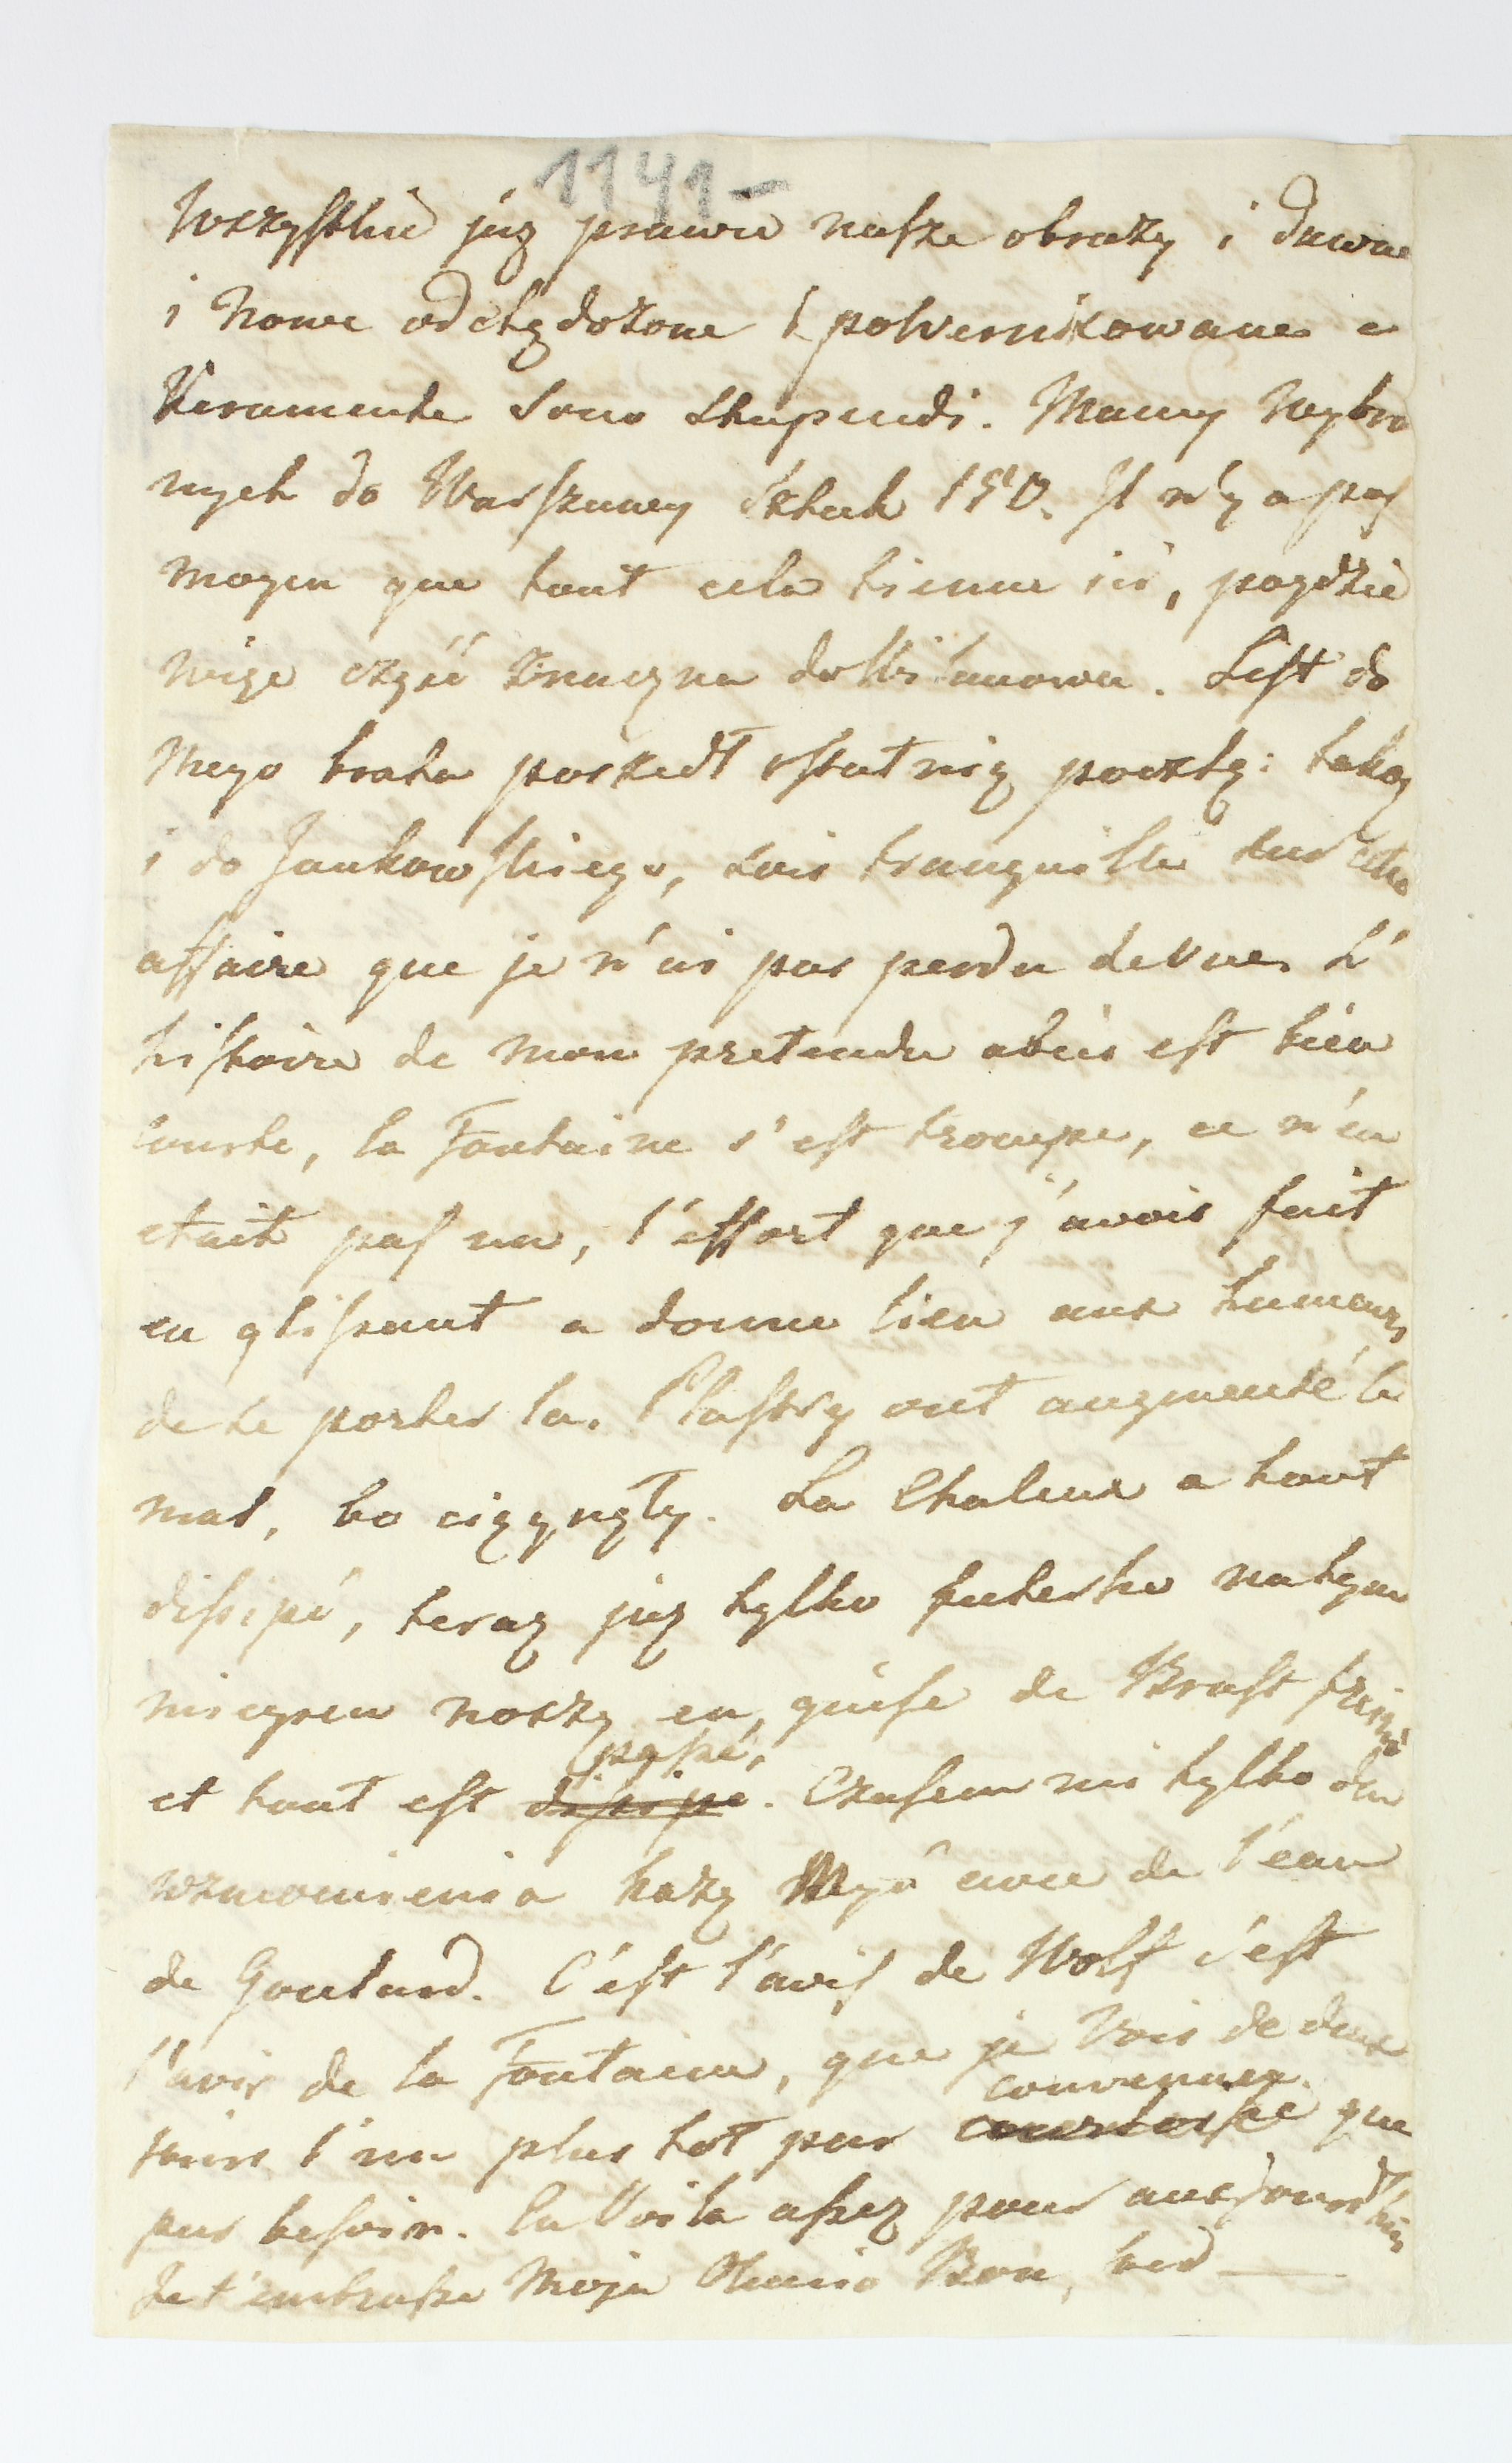 1141-
Wszystkie już prawie nasze obrazy i dawne
i nowe odchędożone i powernixowane e
Veramente sono stupendi. Mamy wybra
nych do Warszawy sztuk 150. Il n'y a pas
moyen que tout cela tienne ici, poydzie
więc część znaczna do Wilanowa. List do
mego brata poszedł ostatnią pocztą: takoż
i do Jankowskiego, sois tranquille sur cette
affaire que je n'ai pas perdu de vue. L'
histoire de mon pretendu abcès est bien
courte, la Fontaine s'est trompé, ce n'en
etait pas un, l'effort que j'avois fait
en glissant a donné lieu aux humeurs
de se porter la. Plastry ont augmenté le
mal, bo ciągnęły. La Chaleur a tout
dissipé, teraz już tylko futerko na tym
mieyscu noszę en guise de
et tout est dissipé passé. Czasem mi tylko dla
wzmocnienia każą myć avec de l'eau
de Goulard. C'est l'avis de Wolf c'est
l'avis de la Fontaine, que je vois de deux
jours l'un plus tot par convenance que
par besoin. En Voila assez pour aujourd'hui
Je t'embrasse Moja